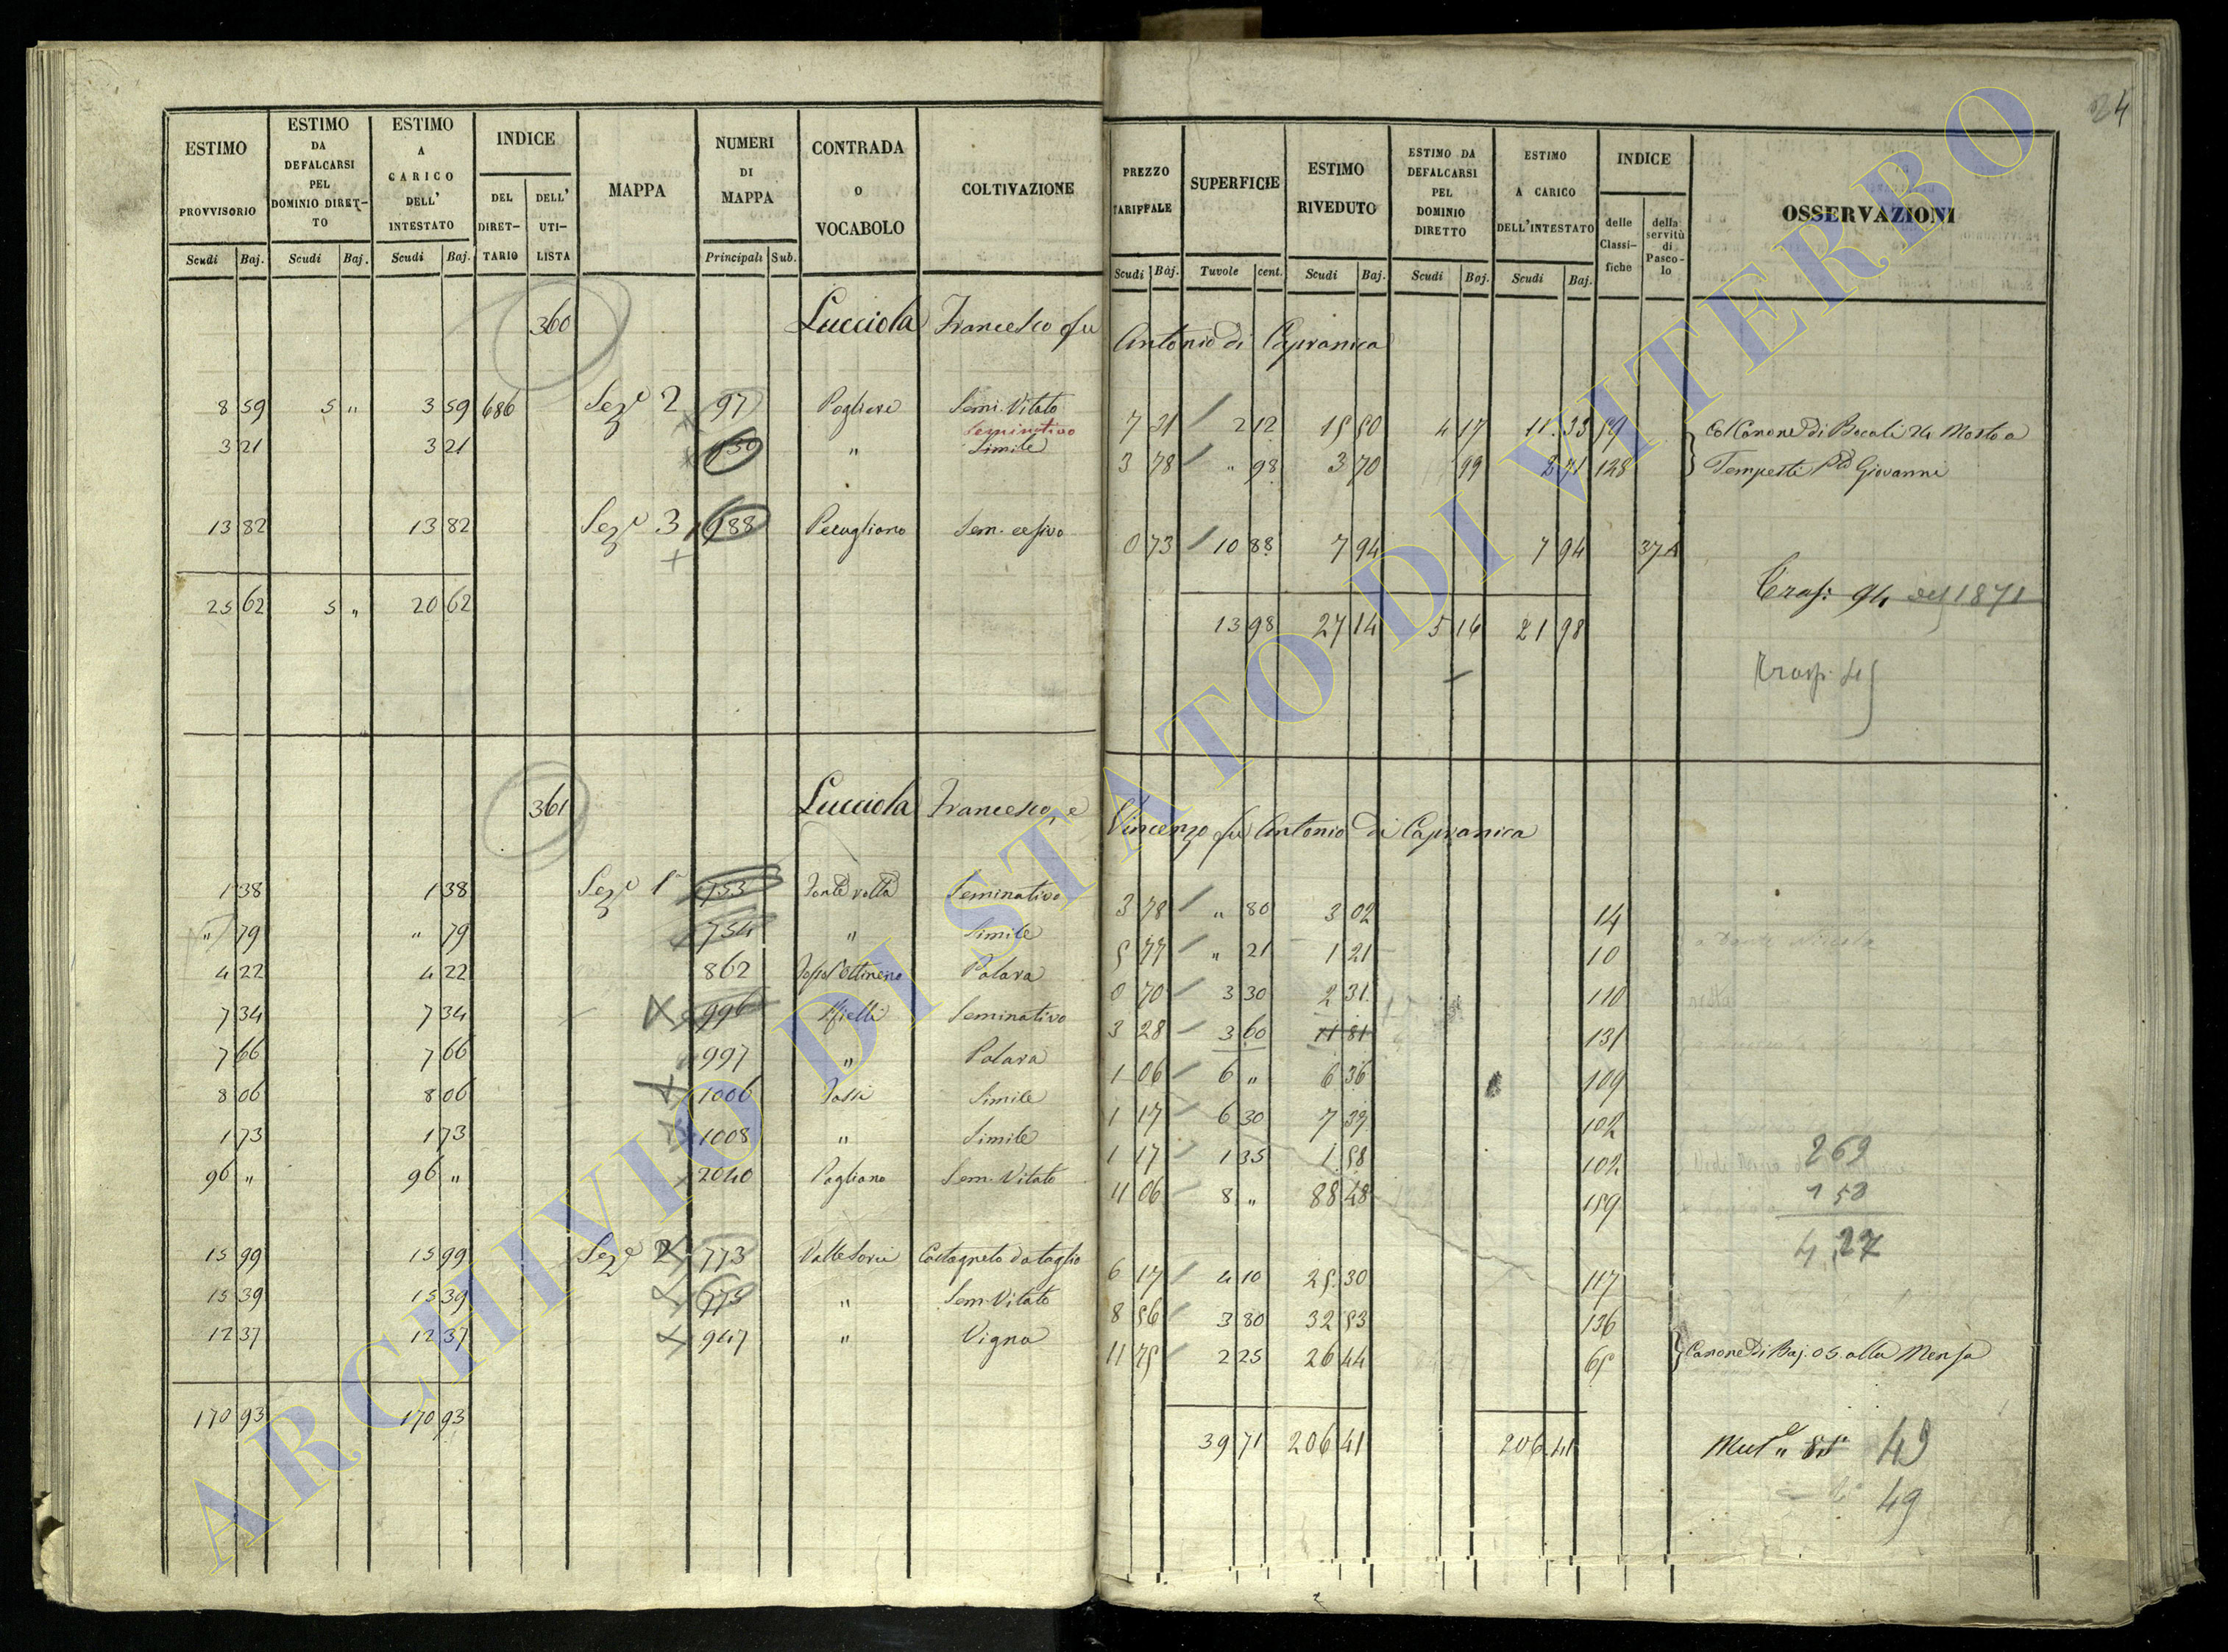 24
ESTIMO PROVVISORIO
ESTIMO DA DEFALCARSI PEL DOMINIO DIRET-TO
ESTIMO A CARICO DELL' INTESTATO
INDICE
DEL DIRET-TARIO
DELL' UTI-LISTA
MAPPA
NUMERI DI MAPPA
CONTRADA O VOCABOLO
COLTIVAZIONE
PREZZO TARIFFALE
SUPERFICIE
ESTIMO RIVEDUTO
ESTIMO DA DEFALCARSI PEL DOMINIO DIRETTO
ESTIMO A CARICO DELL'INTESTATO
INDICE
delle Classi-fiche
della servitù di Pasco-lo
OSSERVAZIONI
Scudi Baj. Scudi Baj. Scudi Baj. Principali Sub. Scudi Baj. Tavole cent. Scudi Baj. Scudi Baj. Scudi Baj.
360 Lucciola Francesco fu Antonio di Capranica
8 59 5 " 3 59 686 Seze 2 97 Pogliere Semi. Vitato 7 31 2 12 15 50 4 17 11 33 59 Col Canone di Bocali 24 Mosto a
Seminativo
3 21 3 21 " Simile 3 78 " 98 3 70 99 2 71 128 Tempesti Giovanni
13 82 13 82 Seze 3 988 Pecugliano Sem. 0 73 10 88 7 94 7 94 37
25 62 5 " 20 62 13 98 27 14 5 16 21 98
Trasp. 94 del 1871
Trasp.
361 Lucciola Francesco, e Vincenzo fu Antonio di Capranica
1 38 1 38 Seze 1a 753 Fonte volta Seminativo 3 78 " 80 3 02 14
" 79 " 79 754 " Simile 5 77 " 21 1 21 10
4 22 4 22 862 Palara 0 70 3 30 2 31 110
7 34 7 34 996 Seminativo 3 28 3 60 11 81 131
7 66 7 66 997 " Palara 1 06 6 " 6 36 109
8 06 8 06 1006 Fossi Simile 1 17 6 30 7 37 102
1 73 1 73 1008 " Simile 1 17 1 35 1 58 102
96 " 96 " 2040 Pogliano Sem. Vitato 11 06 8 " 88 48 159
269
158
4,27
15 99 15 99 Seze 2 773 Valle Castagneto da taglio 6 17 4 10 25 30 117
15 39 15 39 775 " Sem. Vitato 8 56 3 80 32 53 136
12 37 12 37 947 " Vigna 11 75 2 25 26 44 65 Canone di Baj. 05 alla Mensa
170 93 170 93 39 71 206 41 206 41
49
49
ARCHIVIO DI STATO DI VITERBO